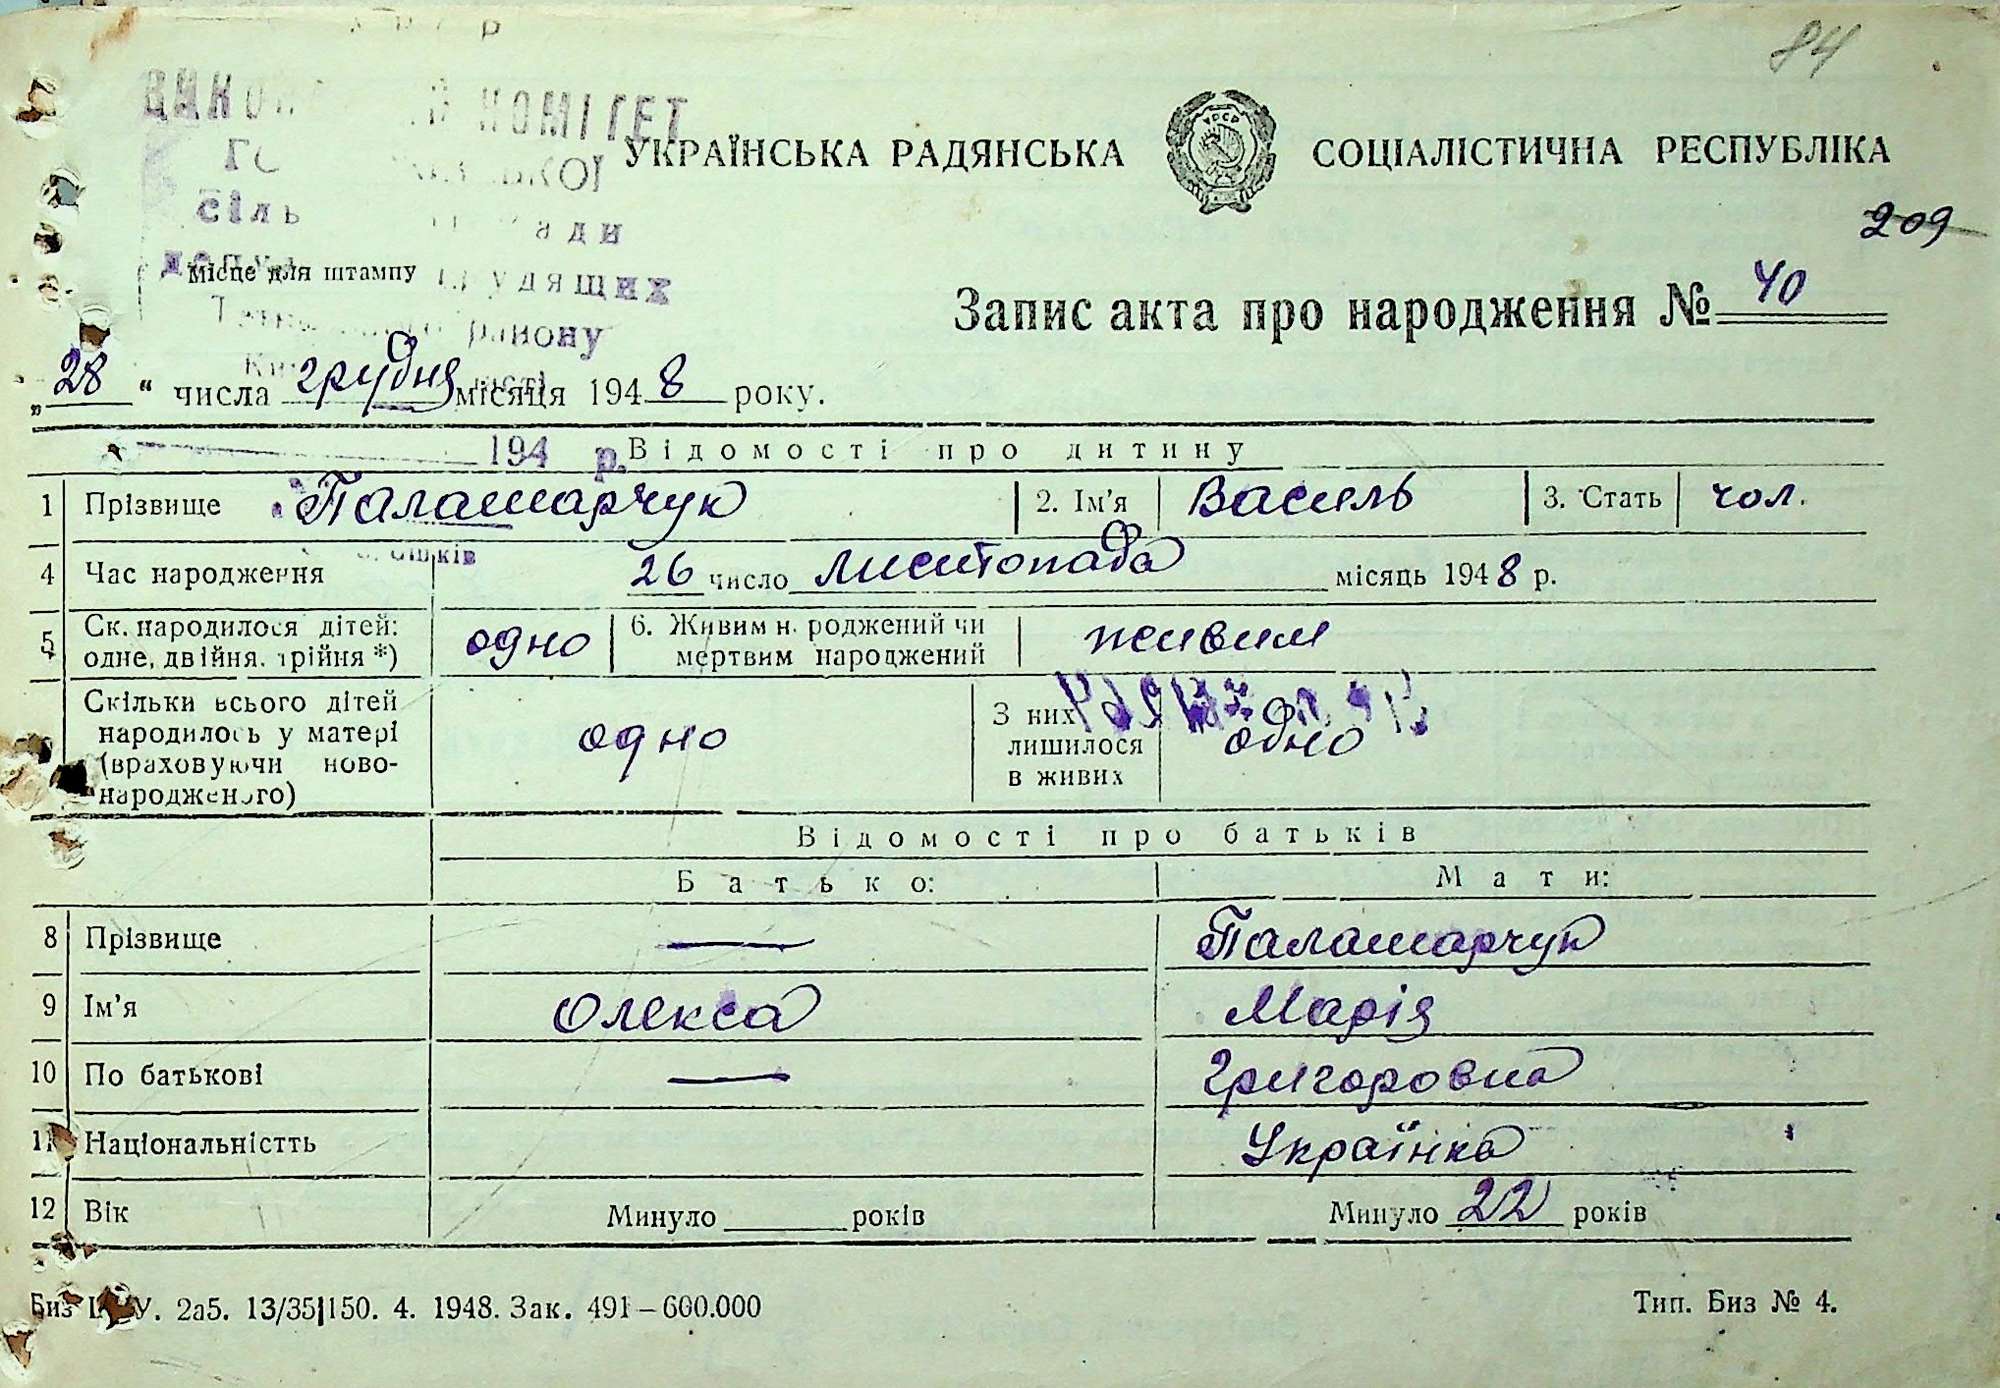 84
КОМІТЕТ
УКРАЇНСЬКА РАДЯНСЬКА СОЦІАЛІСТИЧНА РЕСПУБЛІКА
УРСР
209
місце для штампу
трудящих
району
Запис акта про народження № 40
„28“ числа грудня місяця 1948 року.
194 р.
Відомості про дитину
1 Прізвище Паламарчук 2. Ім'я Василь 3. Стать чол.
4 Час народження 26 число листопада місяць 1948 р.
5 Ск. народилося дітей: одно 6. Живим народжений чи живим
одне, двійня, трійня *) мертвим народжений
Скільки всього дітей
народилось у матері одно З них одно
(враховуючи ново- лишилося
народженого) в живих
Відомості про батьків
Батько: Мати:
8 Прізвище — Паламарчук
9 Ім'я Олекса Марія
10 По батькові — Григоровна
11 Національністть Українка
12 Вік Минуло ____ років Минуло 22 років
Биз У. 2а5. 13/35|150. 4. 1948. Зак. 491 – 600.000 Тип. Биз № 4.